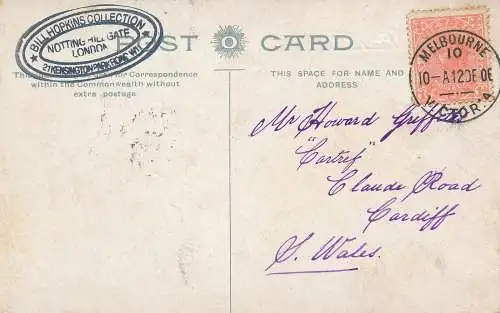 BILL HOPKINS COLLECTION
NOTTING HILL GATE
LONDON
21 KENSINGTON PARK ROAD W11
POST CARD
This Space may be used for Correspondence
within the Commonwealth without
extra postage
THIS SPACE FOR NAME AND
ADDRESS
MELBOURNE
10
10-A12DE 06
VICTORIA
Mr Howard Griffiths
"Cartref"
Claude Road
Cardiff
S. Wales.